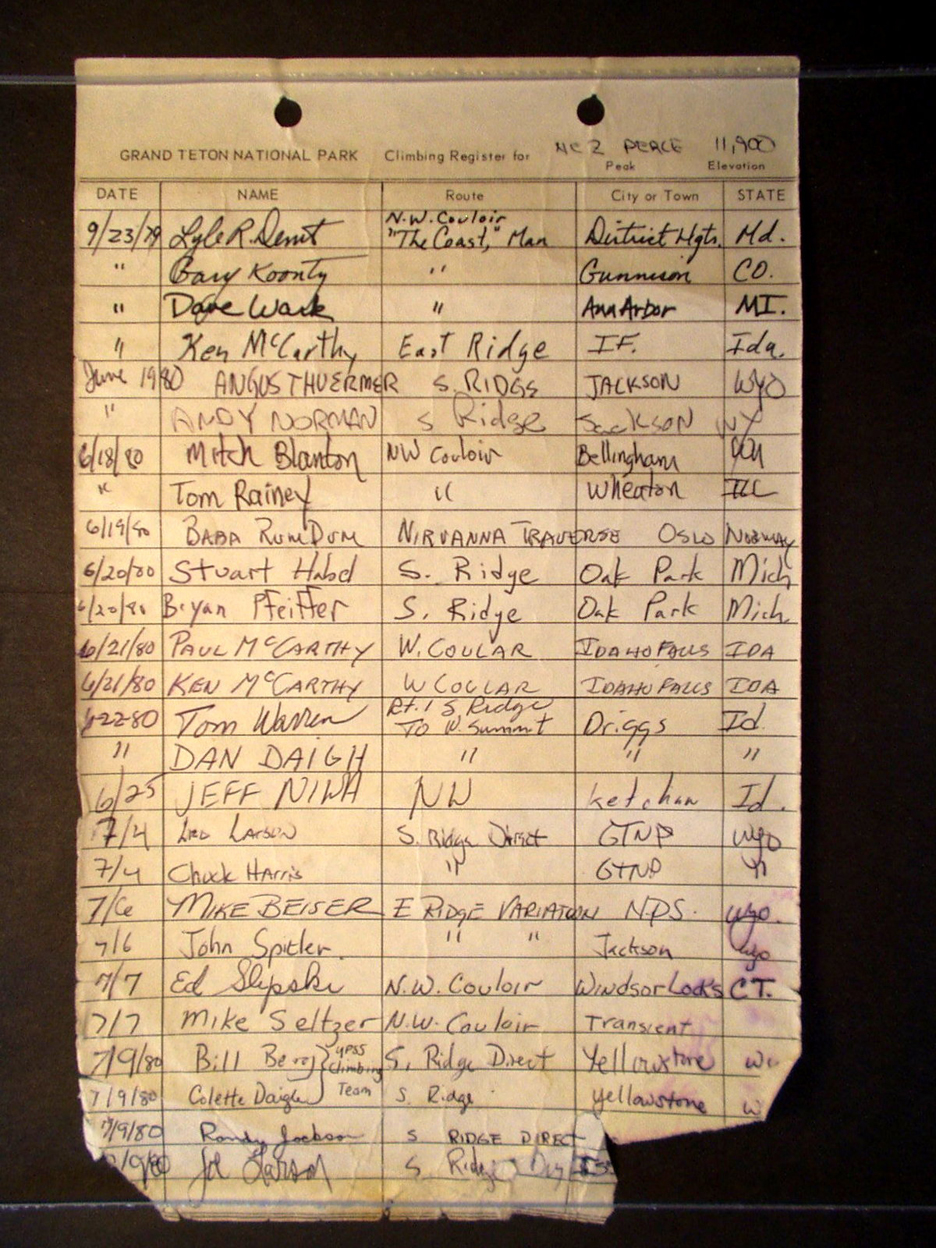 GRAND TETON NATIONAL PARK Climbing Register for Nez PERCE 11,900
Peak Elevation
DATE NAME Route City or Town STATE
9/23/79 Lyle R. Demit N.W. Couloir "The Coast," Man District Hgts. Md.
" Gary Koonty " Gunnison CO.
" Dave Wark " Ann Arbor MI.
" Ken McCarthy East Ridge I.F. Ida.
June 1980 ANGUS THUERMER S. RIDGS JACKSON WYO
" ANDY NORMAN S Ridge Jackson WY
6/18/80 Mitch Blanton NW Couloir Bellingham
" Tom Rainey " Wheaton ILL
6/19/80 BABA RUMDUM NIRVANNA TRAVERSE OSLO NORWAY
6/20/80 Stuart S. Ridge Oak Park Mich
6/20/80 Bryan Pfeiffer S. Ridge Oak Park Mich
6/21/80 PAUL McCARTHY W. COULAR IDAHO FALLS IDA
6/21/80 KEN McCARTHY W COULAR IDAHO FALLS IDA
6-22-80 Tom Warren Rt. 1 S. Ridge To N. Summit Driggs Id.
" DAN DAIGH " " "
6/25 JEFF NIWA NW Ketchum Id.
7/4 Leo Larson S. Ridge Direct GTNP Wyo
7/4 Chuck Harris " GTNP "
7/6 MIKE BEISER E RIDGE VARIATION NPS. Wyo.
7/6 John Spitler. " " Jackson Wyo
7/7 Ed Slipski N.W. Couloir Windsor Locks CT.
7/7 Mike Seltzer N.W. Couloir Transient
7/9/80 Bill Berg } YPSS Climbing Team S. Ridge Direct Yellowstone
7/9/80 Colette Daigle S. Ridge Yellowstone W
7/9/80 Randy Jackson S RIDGE DIRECT
/9/80 Joe Larson S Ridge